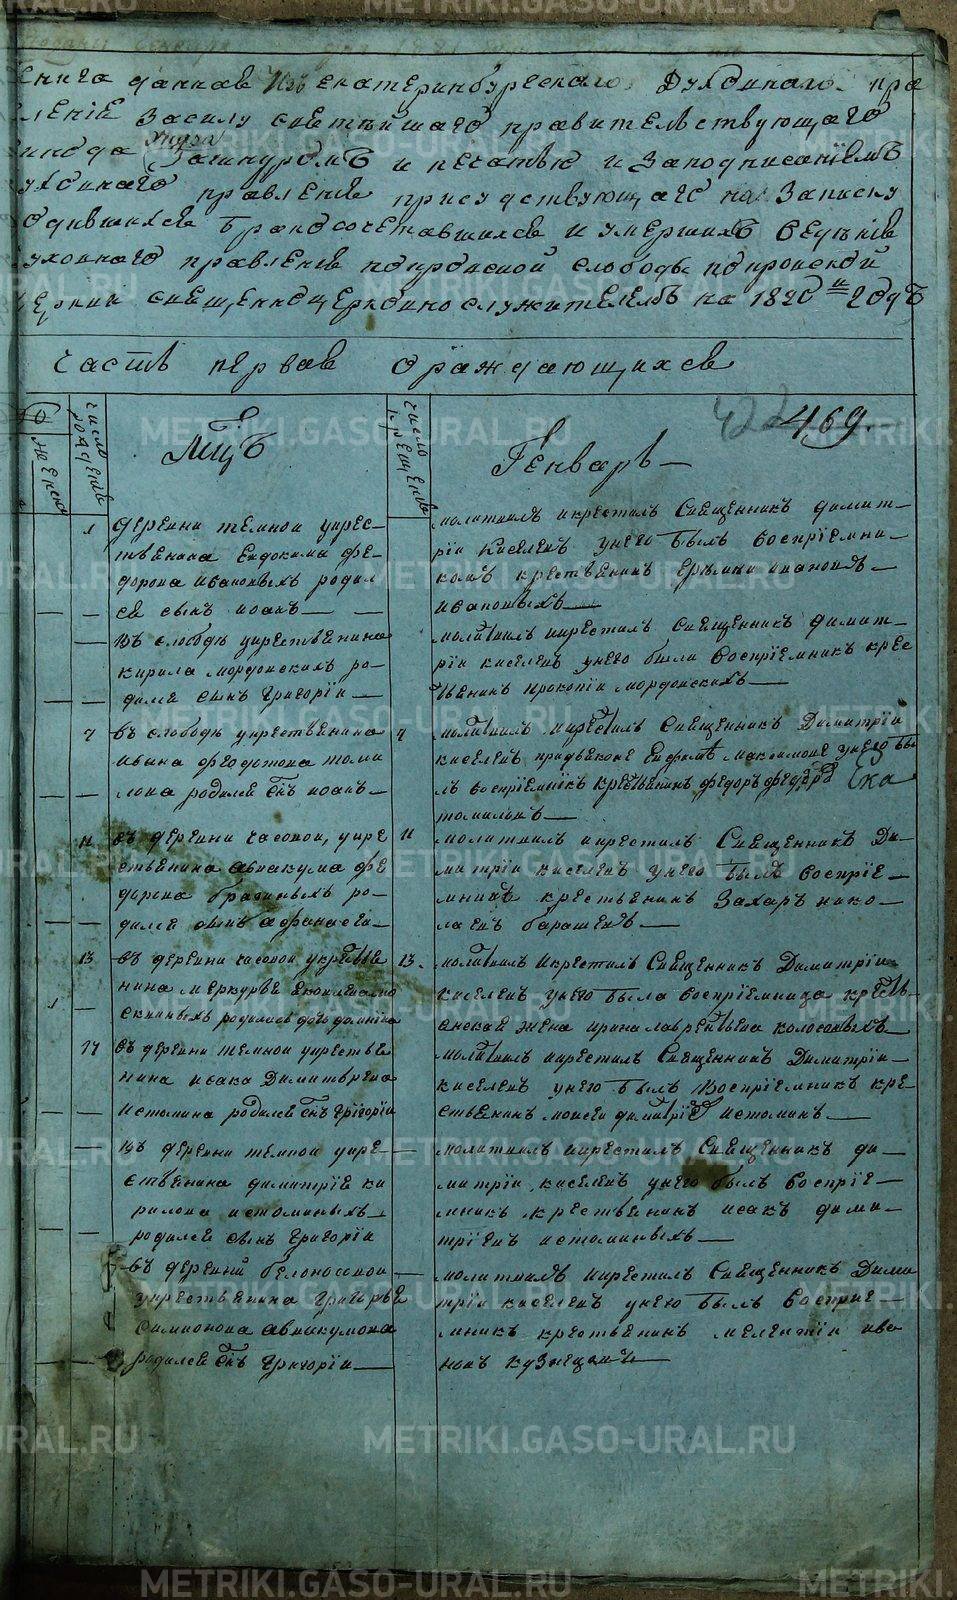 книга данная Изъ екатеринбургскаго Духовнаго пра
ления Засилу светейшаго правительствующаго
инода Указа Зашнуромъ и печатью и Заподписаниемъ
уховнаго правления присудствующаго на Записку
одившихся бракосочетавшихся и умершихъ ведения
уховнаго правления покровской слободы покровской
церкви священноцерковнослужителемъ на 1820й годъ
часть первая ораждающихся
422 469.
число рождения
Лицъ
число крещения
Генварь
женска
1 деревни темной укрес-
твенина Евдокима фе-
дорова ивановыхъ родил
ся сынъ иоанъ
молитвилъ икрестилъ Священникъ димит-
рiи Киселевъ унего былъ воспрiемни-
комъ крественинъ ивановъ
ивановыхъ
въ слободе укрественина
кирила мордовскихъ ро-
дился сынъ Григорiи
молитвилъ икрестилъ Священникъ димит-
рiи киселевъ унего были воспрiемникъ крес
твенинъ прокопiи мордовскихъ
7 въ слободе укрественина
ивана федотова томи
лова родился снъ иоанъ
7 молитвилъ икрестилъ Священникъ Димитрiи
киселевъ придьяконе Евфиме максимове унего бы
лъ воспрiемникъ крественинъ федоръ федоровъ
томиловъ
11 въ деревни часовой, укре
ственина авакума фе
дорова брагиныхъ ро-
дился сынъ афанасеи
11 молитвилъ икрестилъ Священникъ Ди-
митрiи киселевъ унего былъ воспрiе-
мникъ крественинъ Захаръ нико-
лаевъ барашевъ
13 въ деревни часовой укрестья
нина меркурья
родилась дочь домника
13. молитвилъ икрестилъ Священникъ Димитрiи
киселевъ унего была воспрiемница кресть-
янская жена ирина лаврентьева колосовыхъ
17 въ деревни темной укрестья
нина исака Димитрeва
истомина родился снъ григорiи
молитвилъ икрестилъ Священникъ Димитрiи
киселевъ унего былъ воспрiемникъ кре
ственинъ моисеи димитрiевъ истоминъ
въ деревни темной укре-
ственина димитрiе ки
рилова истоминыхъ
родился сынъ Григорiи
молитвилъ икрестилъ Священникъ ди-
митрiи, киселевъ унего былъ воспрiе-
мникъ крественинъ исакъ дими-
трiевъ истоминыхъ
въ деревни белоносовой
укрественина григорье
симионова авакумова
родился снъ Григорiи
молитвилъ икрестилъ Священникъ Дими
трiи киселевъ унего былъ воспрiе-
мникъ крественинъ мелентiи ива
новъ кузнецовъ
METRIKI.GASO-URAL.RU